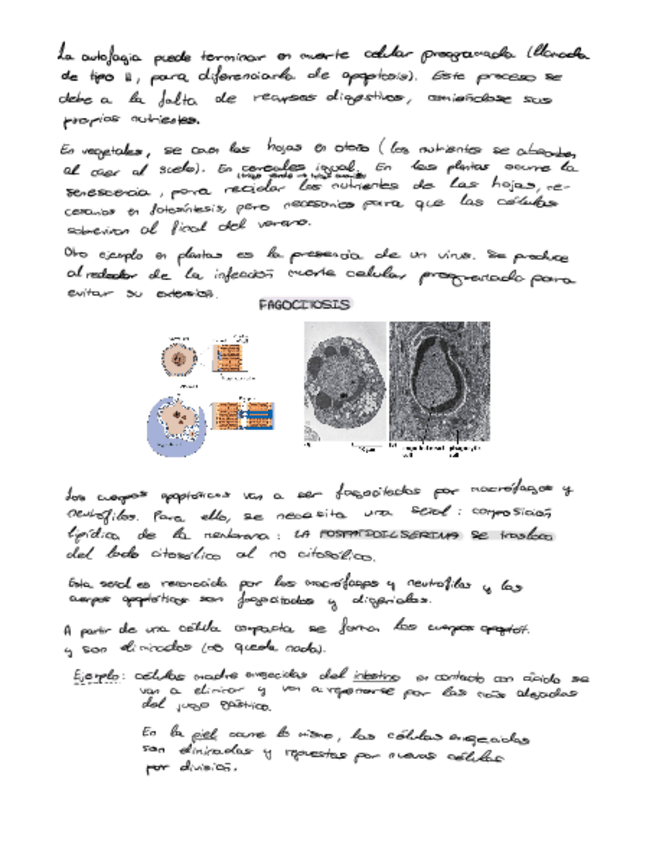 La autofagia puede terminar en muerte celular programada (llamada
de tipo II, para diferenciarla de apoptosis). Este proceso se
debe a la falta de recursos digestivos, comiéndose sus
propios nutrientes.
En vegetales, se caen las hojas en otoño (los nutrientes se absorben
al caer al suelo). En cereales igual. En las plantas ocurre la
senescencia, para reciclar los nutrientes de las hojas, ne-
cesarios en fotosíntesis, pero necesarios para que las células
sobrevivan al final del verano.
Otro ejemplo en plantas es la presencia de un virus. Se produce
alrededor de la infección muerte celular programada para
evitar su extensión.
FAGOCITOSIS
Los cuerpos apoptóticos van a ser fagocitados por macrófagos y
neutrófilos. Para ello, se necesita una señal: composición
lipídica de la membrana: LA FOSFATIDILSERINA se trasloca
del lado citosólico al no citosólico.
Esta señal es reconocida por los macrófagos y neutrófilos y los
cuerpos apoptóticos son fagocitados y digeridos.
A partir de una célula compacta se forman los cuerpos apoptót.
y son eliminados (no queda nada).
Ejemplo: células madre envejecidas del intestino en contacto con ácido se
van a eliminar y van a reponerse por las más alejadas
del jugo gástrico.
En la piel ocurre lo mismo, las células envejecidas
son eliminadas y repuestas por nuevas células
por división.